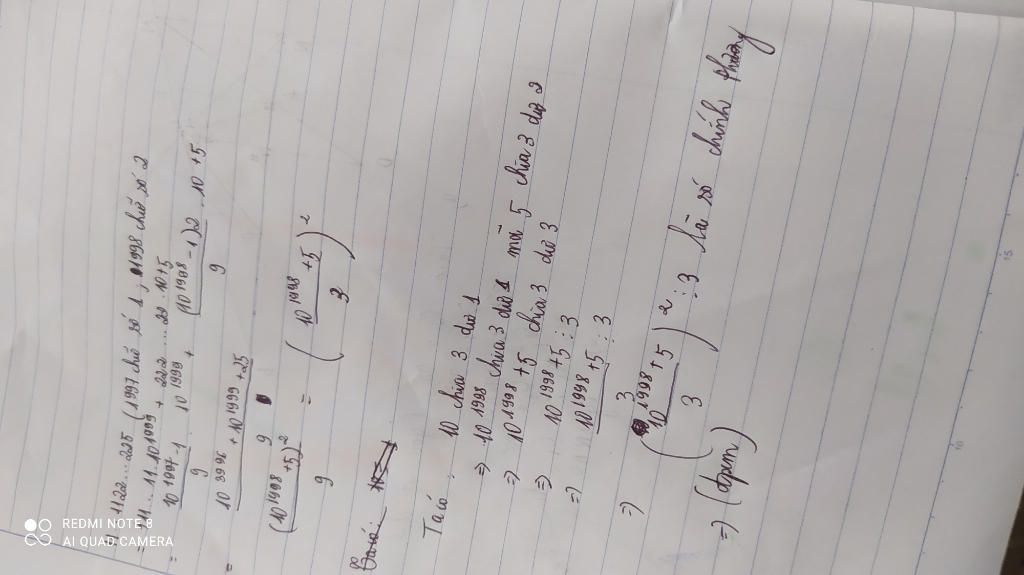 1122...225 (1997 chữ số 1; 1998 chữ số 2
= 11...11.10^1999 + 222...22.10+5
= (10^1997 - 1)/9 . 10^1999 + (10^1998 - 1)2/9 . 10 + 5
= (10^3996 + 10^1999 + 25)/9
(10^1998 + 5)^2/9 = ((10^1998 + 5)/3)^2
Ta có: 10 chia 3 dư 1
=) 10^1998 chia 3 dư 1 mà 5 chia 3 dư 2
=) 10^1998 + 5 chia 3 dư 3
=) 10^1998 + 5 ⋮ 3
=) (10^1998 + 5)/3 ⋮ 3
=) ((10^1998 + 5)/3)^2 ⋮ 3 là số chính phương
=) (đpcm)
REDMI NOTE 8
AI QUAD CAMERA